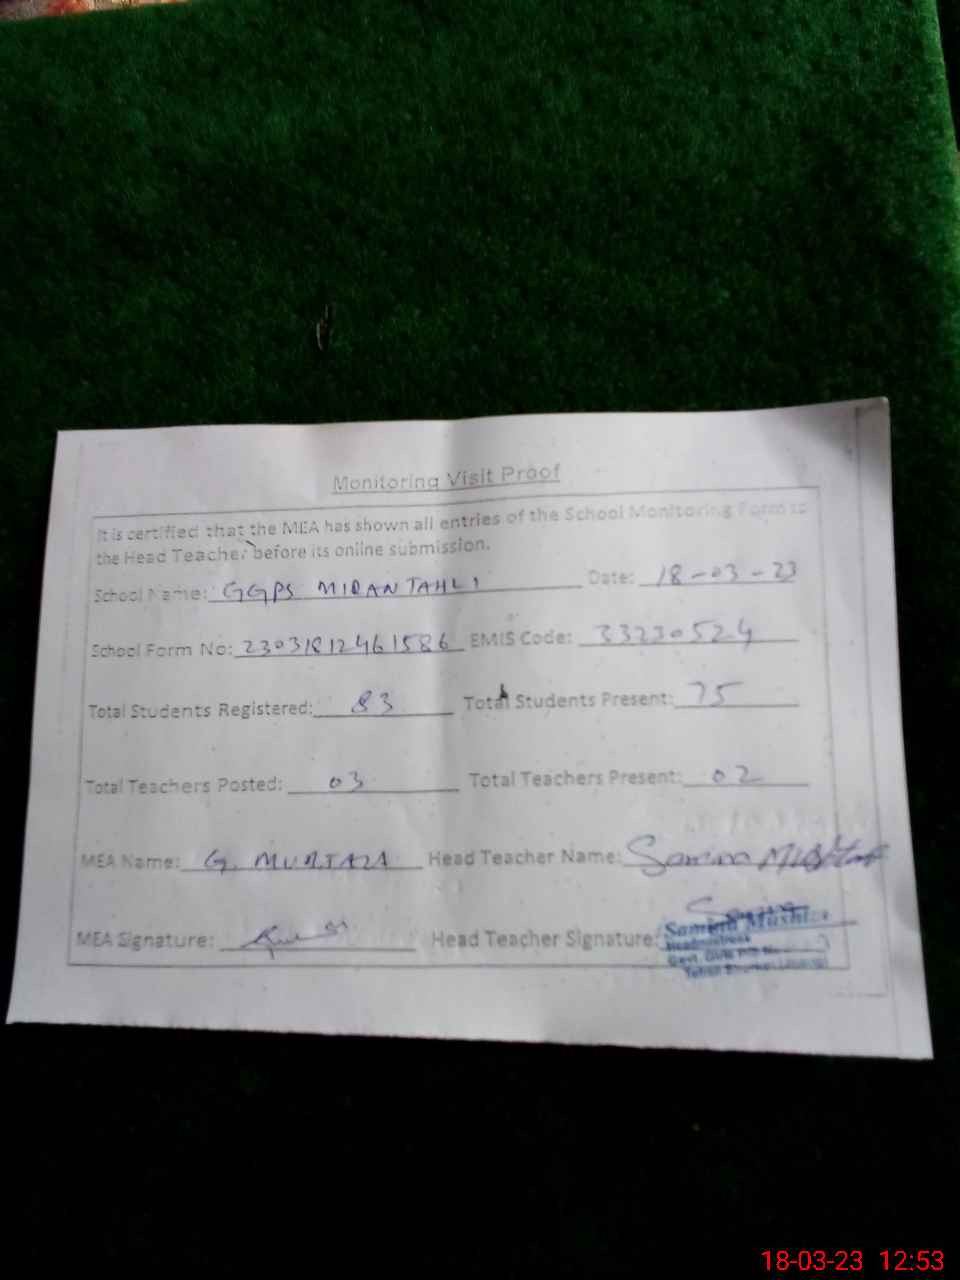 Monitoring Visit Proof
It is certified that the MEA has shown all entries of the School Monitoring Form to
the Head Teacher before its online submission.
School Name: GGPS MIRAN TAHLI Date: 18-03-23
School Form No: 23031812461586 EMIS Code: 33230524
Total Students Registered: 83 Total Students Present: 75
Total Teachers Posted: 03 Total Teachers Present: 02
MEA Name: G. MURTAZA Head Teacher Name: Samina Mushtaq
MEA Signature: Head Teacher Signature:
Samina Mushtaq
Headmistress
Govt.
18-03-23 12:53